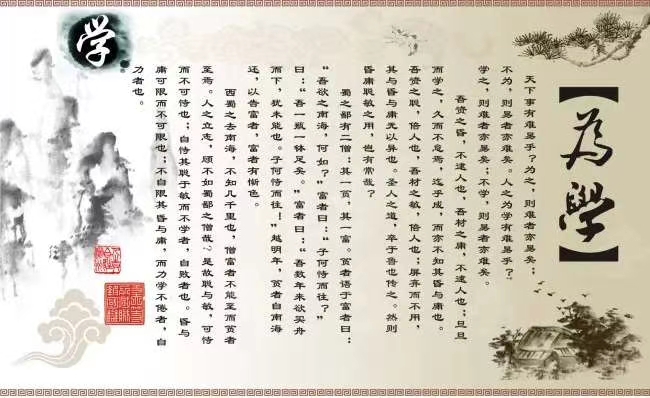 【為學】
天下事有难易乎?为之,则难者亦易矣;
不为,则易者亦难矣。人之为学有难易乎?
学之,则难者亦易矣;不学,则易者亦难矣。
吾资之昏,不逮人也,吾材之庸,不逮人也;旦旦
而学之,久而不怠焉,迄乎成,而亦不知其昏与庸也。
吾资之聪,倍人也,吾材之敏,倍人也;屏弃而不用,
其与昏与庸无以异也。圣人之道,卒于鲁也传之。然则
昏庸聪敏之用,岂有常哉?
蜀之鄙有二僧:其一贫,其一富。贫者语于富者曰:
“吾欲之南海,何如?”富者曰:“子何恃而往?”
曰:“吾一瓶一钵足矣。”富者曰:“吾数年来欲买舟
而下,犹未能也。子何恃而往!”越明年,贫者自南海
还,以告富者,富者有惭色。
西蜀之去南海,不知几千里也,僧富者不能至而贫者
至焉。人之立志,顾不如蜀鄙之僧哉?是故聪与敏,可恃
而不可恃也;自恃其聪于敏而不学者,自败者也。昏与
庸可限而不可限也;不自限其昏与庸,而力学不倦者,自
力者也。
学